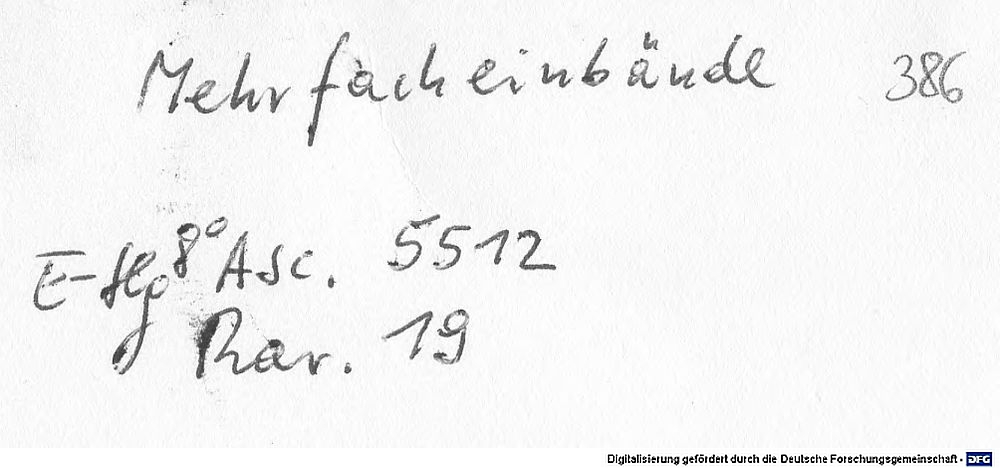 Mehrfacheinbände 386
E-Slg 8° Asc. 5512
Rar. 19
Digitalisierung gefördert durch die Deutsche Forschungsgemeinschaft - DFG